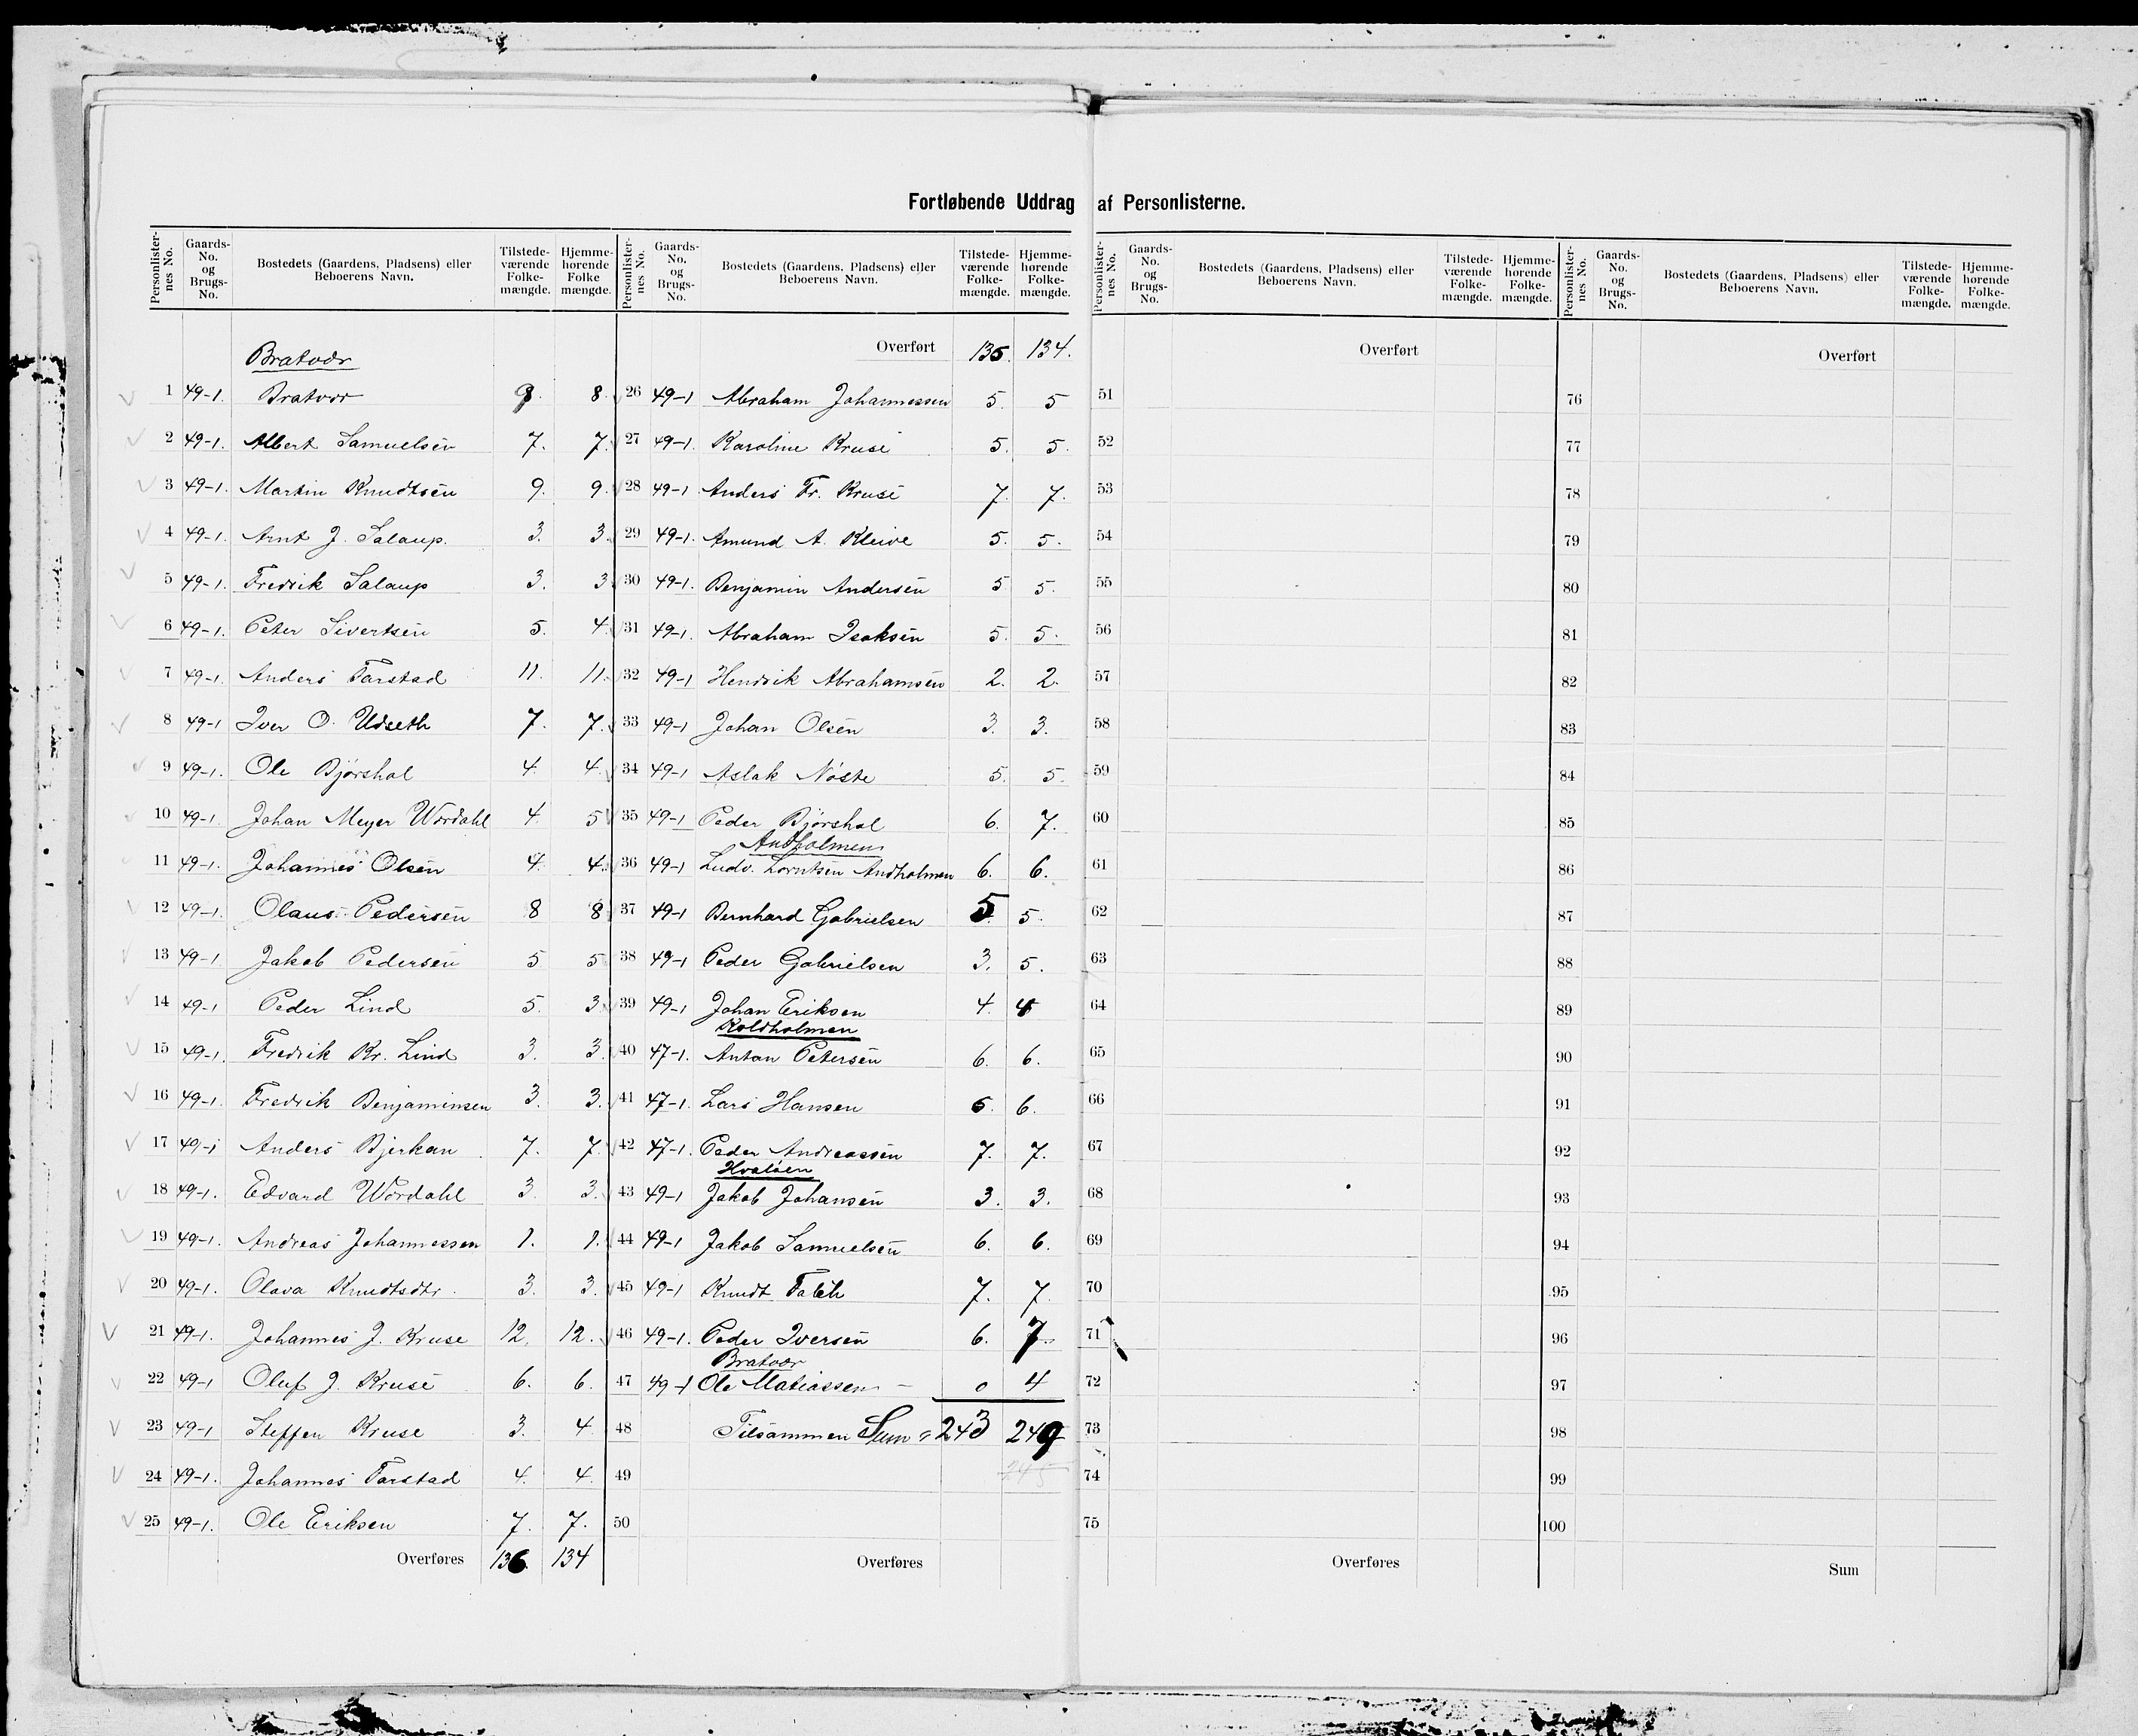 Fortløbende Uddrag af Personlisterne.
Personlister-nes No. Gaards-No. og Brugs-No. Bostedets (Gaardens, Pladsens) eller Beboerens Navn. Tilstede-værende Folke-mængde. Hjemme-hørende Folke mængde.
Bratvær
1 49-1. Bratvær 8. 8.
2 49-1. Albert Samuelsen 7. 7.
3 49-1. Martin Knudtsen 9. 9.
4 49-1. Arnt J. Salaup. 3. 3.
5 49-1. Fredrik Salaup 3. 3
6 49-1. Peter Sivertsen 5. 4.
7 49-1. Anders Tarstad 11. 11.
8 49-1 Iver O. Udseth 7. 7.
9 49-1. Ole Bjørshol 4. 4.
10 49-1. Johan Meyer Wördahl 4. 5
11 49-1. Johannes Olsen 4. 4.
12 49-1. Olaus Pedersen 8 8
13 49-1 Jakob Pedersen 5 5
14 49-1 Peder Lind 5. 3.
15 49-1. Fredrik Kr. Lind 3. 3.
16 49-1. Fredrik Benjaminsen 3. 3.
17 49-1 Anders Bjerkan 7. 7.
18 49-1. Edvard Wördahl 3. 3.
19 49-1. Andreas Johannessen 1. 1.
20 49-1. Olava Knudtsdtr. 3. 3.
21 49-1. Johannes J. Kruse 12. 12.
22 49-1 Oluf J. Kruse 6. 6.
23 49-1 Steffen Kruse 3. 4.
24 49-1. Johannes Tarstad 4. 4.
25 49-1. Ole Eriksen 7. 7.
Overføres 136. 134
Personlister-nes No. Gaards-No. og Brugs-No. Bostedets (Gaardens, Pladsens) eller Beboerens Navn. Tilstede-værende Folke-mængde. Hjemme-hørende Folke-mængde.
Overført 135. 134.
26 49-1 Abraham Johannessen 5. 5
27 49-1. Karoline Kruse 5. 5.
28 49-1 Anders Fr. Kruse 7. 7.
29 49-1. Amund A. Kleive 5. 5.
30 49-1. Benjamin Andersen 5 5.
31 49-1. Abraham Isaksen 5. 5.
32 49-1 Henrik Abrahamsen 2. 2.
33 49-1 Johan Olsen 3. 3.
34 49-1 Aslak Nöste 5. 5.
35 49-1 Peder Bjørshol 6. 7.
Andholmen
36 49-1 Ludv. Lorntsen Andholmen 6. 6.
37 49-1 Bernhard Gabrielsen 5. 5.
38 49-1 Peder Gabrielsen 3. 5.
39 49-1 Johan Eriksen 4. 4
Koldholmen
40 47-1. Anton Petersen 6. 6.
41 47-1. Lars Hansen 6. 6.
42 47-1. Peder Andreassen 7. 7.
Hvaløen
43 49-1 Jakob Johansen 3. 3.
44 49-1 Jakob Samuelsen 6. 6.
45 49-1 Knudt Falch 7. 7.
46 49-1. Peder Iversen 6. 7.
Bratvær
47 49-1 Ole Matiassen - 0 4
48 Tilsammen Sum = 243 249
49 245
50
Overføres
Personlister-nes No. Gaards-No. og Brugs-No. Bostedets (Gaardens, Pladsens) eller Beboerens Navn. Tilstede-værende Folke-mængde. Hjemme-hørende Folke-mængde.
Overført
51
52
53
54
55
56
57
58
59
60
61
62
63
64
65
66
67
68
69
70
71
72
73
74
75
Overføres
Personlister-nes No. Gaards-No. og Brugs-No. Bostedets (Gaardens, Pladsens) eller Beboerens Navn. Tilstede-værende Folke-mængde. Hjemme-hørende Folke-mængde.
Overført
76
77
78
79
80
81
82
83
84
85
86
87
88
89
90
91
92
93
94
95
96
97
98
99
100
Sum